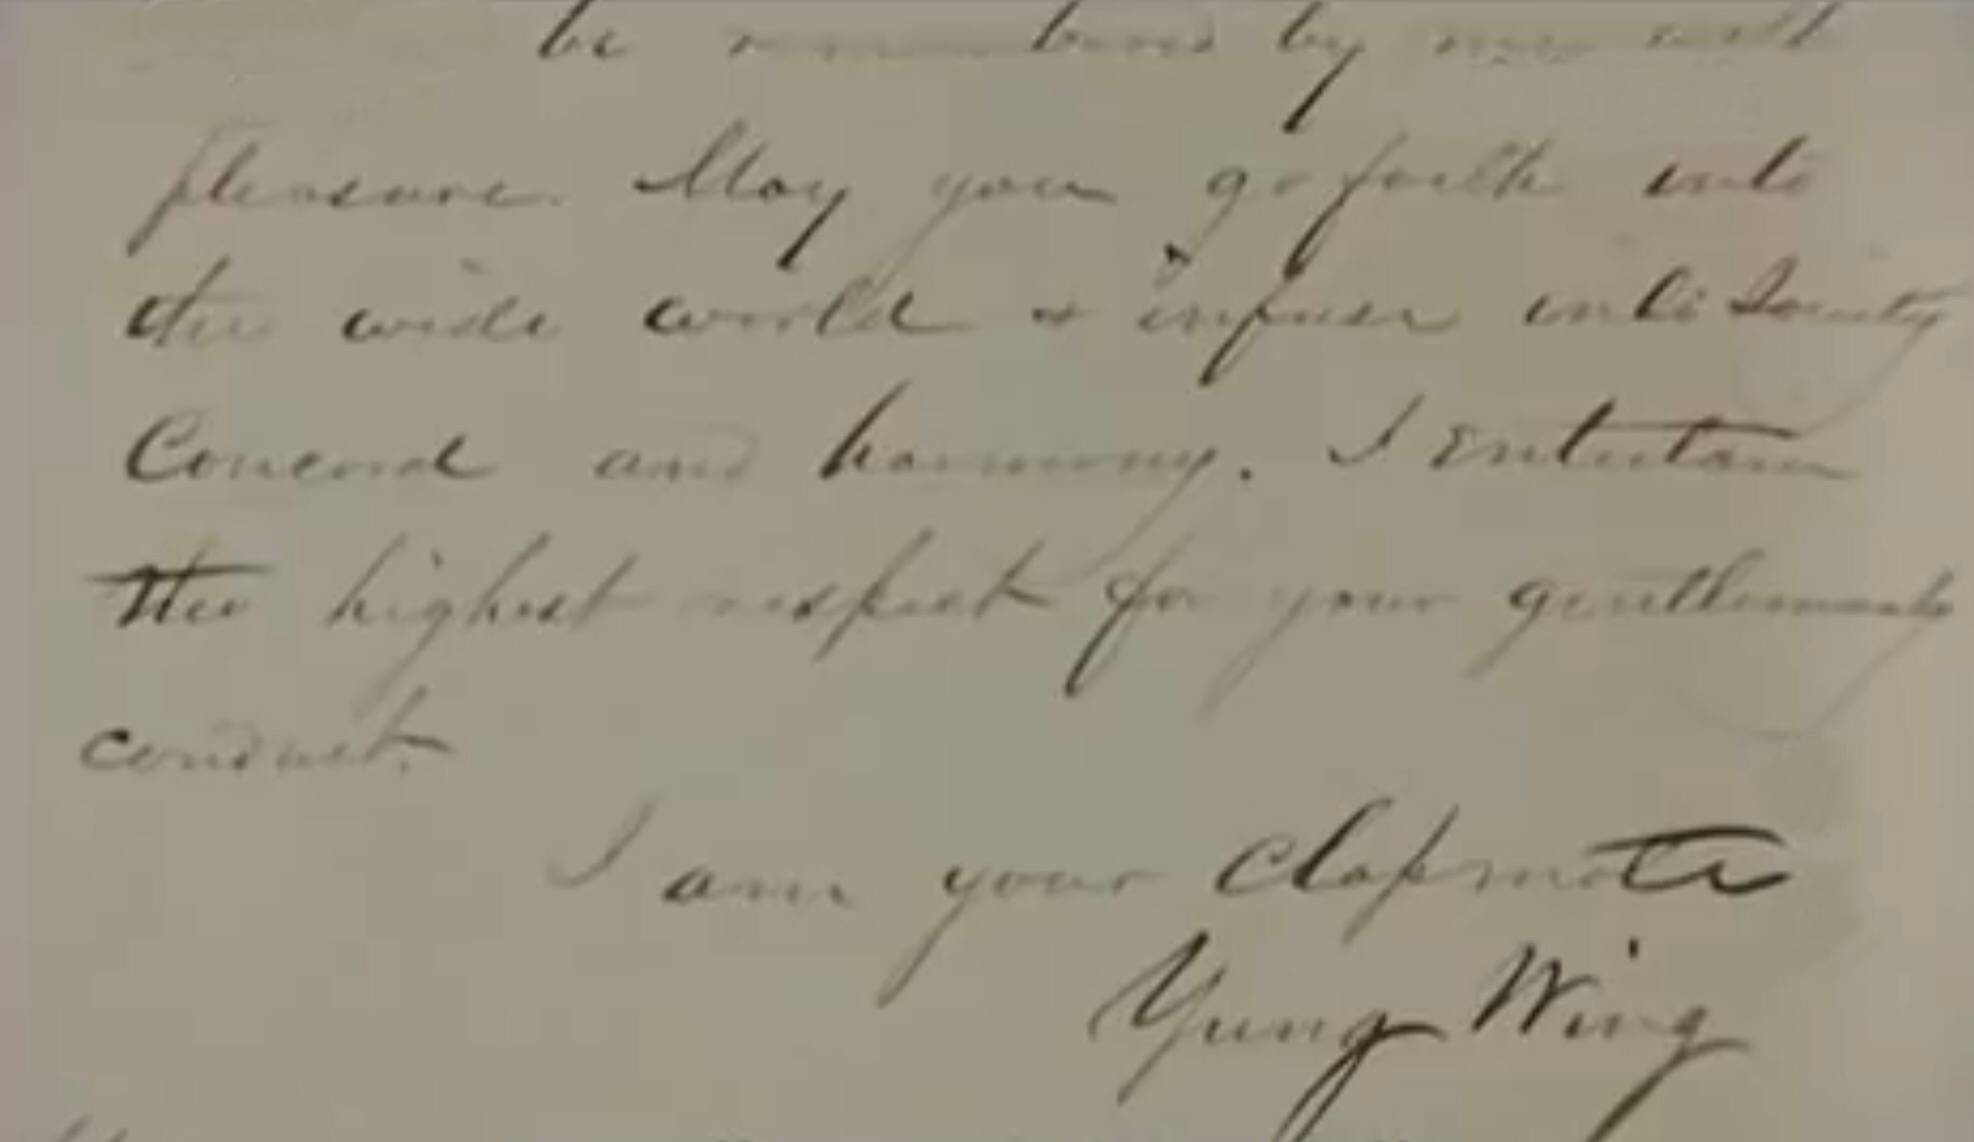 be remembered by me with
pleasure. May you go forth into
the wide world & infuse into Society
Concord and harmony. I entertain
the highest respect for your gentlemanly
conduct.
I am your classmate
Yung Wing